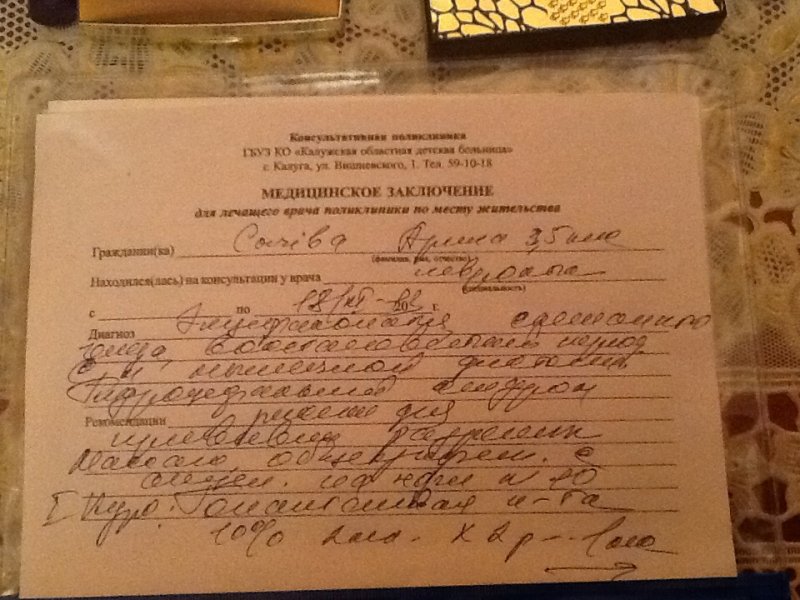 Консультативная поликлиника
ГКУЗ КО «Калужская областная детская больница»
г. Калуга, ул. Вишневского, 1. Тел. 59-10-18
МЕДИЦИНСКОЕ ЗАКЛЮЧЕНИЕ
для лечащего врача поликлиники по месту жительства
Гражданин(ка) Арина 3,5 мес
(фамилия, имя, отчество)
Находился(лась) на консультации у врача невролога
(специальность)
с по 20 г.
Диагноз Энцефалопатия смешанного
генеза, восстановительный период
С-м мышечной дистонии
Гидроцефальный синдром
Рекомендации режим дня
Массаж общеукреп. с
N 10
I Курс: Пантогамовая к-та
10% 2 мл. х 2 р - 1 мес